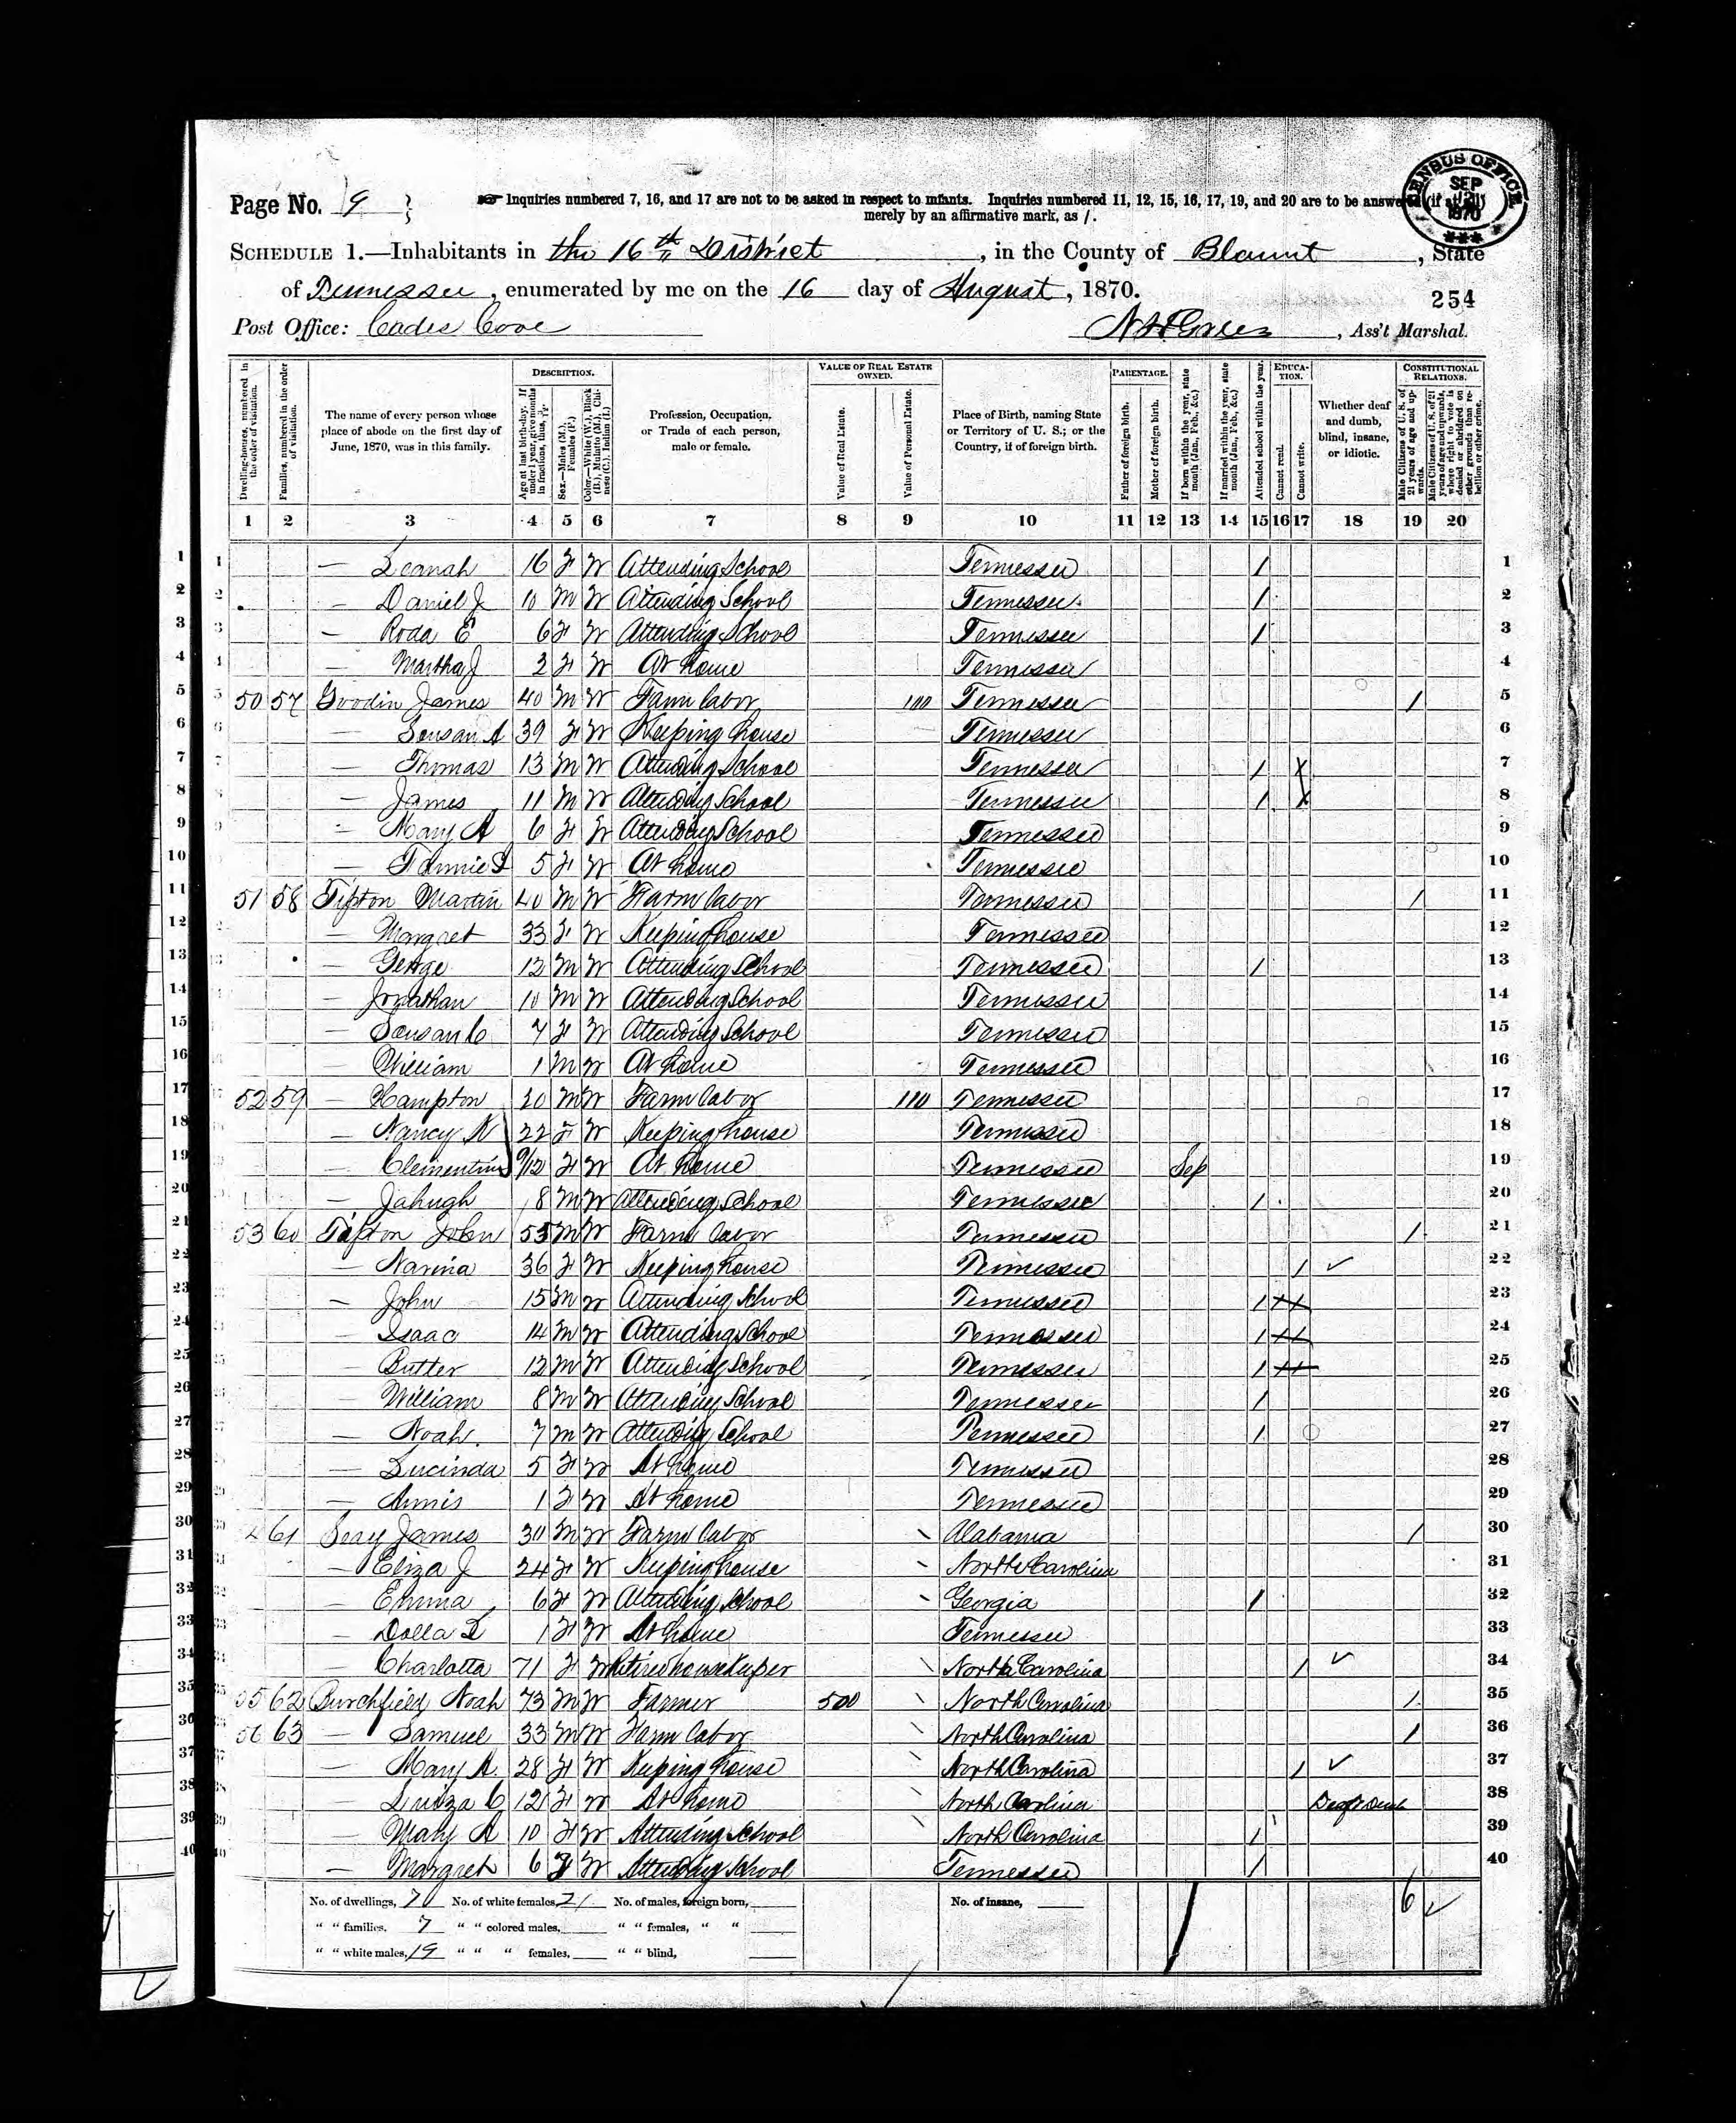 Page No. 9
☞ Inquiries numbered 7, 16, and 17 are not to be asked in respect to infants. Inquiries numbered 11, 12, 15, 16, 17, 19, and 20 are to be answered (if at all)
merely by an affirmative mark, as /.
CENSUS OFFICE SEP 1870
SCHEDULE 1.—Inhabitants in the 16th District, in the County of Blount, State
of Tennessee, enumerated by me on the 16 day of August, 1870.
254
Post Office: Cades Cove
, Ass't Marshal.
Dwelling-houses, numbered in the order of visitation.
Families, numbered in the order of visitation.
The name of every person whose place of abode on the first day of June, 1870, was in this family.
DESCRIPTION.
Age at last birth-day. If under 1 year, give months in fractions, thus, 3/12.
Sex.—Males (M.), Females (F.)
Color.—White (W.), Black (B.), Mulatto (M.), Chinese (C.), Indian (I.)
Profession, Occupation, or Trade of each person, male or female.
VALUE OF REAL ESTATE OWNED.
Value of Real Estate.
Value of Personal Estate.
Place of Birth, naming State or Territory of U. S.; or the Country, if of foreign birth.
PARENTAGE.
Father of foreign birth.
Mother of foreign birth.
If born within the year, state month (Jan., Feb., &c.)
If married within the year, state month (Jan., Feb., &c.)
Attended school within the year.
EDUCATION.
Cannot read.
Cannot write.
Whether deaf and dumb, blind, insane, or idiotic.
CONSTITUTIONAL RELATIONS.
Male Citizens of U. S. of 21 years of age and upwards.
Male Citizens of U. S. of 21 years of age and upwards, whose right to vote is denied or abridged on other grounds than rebellion or other crime.
1 2 3 4 5 6 7 8 9 10 11 12 13 14 15 16 17 18 19 20
1 — Leanah 16 F W Attending School Tennessee / 1
2 — Daniel J 10 M W Attending School Tennessee / 2
3 — Roda E 6 F W Attending School Tennessee / 3
4 — Martha J F W At home Tennessee 4
5 50 57 Goodin James 40 M W Farm labor 100 Tennessee / 5
6 — Sousan A 39 F W Keeping house Tennessee 6
7 — Thomas 13 M W Attending School Tennessee / X 7
8 — James 11 M W Attending School Tennessee / X 8
9 — Mary A 6 F W Attending School Tennessee 9
10 — 5 F W At home Tennessee 10
11 51 58 Tipton Martin 40 M W Farm labor Tennessee / 11
12 — Margret 33 F W Keeping house Tennessee 12
13 — George 12 M W Attending School Tennessee / 13
14 — Jonathan 10 M W Attending School Tennessee 14
15 — Sousan C 7 F W Attending School Tennessee 15
16 — William 1 M W At home Tennessee 16
17 52 59 — Hampton 20 M W Farm labor Tennessee 17
18 — Nancy N 22 F W Keeping house Tennessee 18
19 — 9/12 F W At home Tennessee Sep 19
20 — 8 M W Attending School Tennessee / 20
21 53 60 Tipton John 55 M W Farm labor Tennessee / 21
22 — Narina 36 F W Keeping house Tennessee / ✓ 22
23 — John 15 M W Attending School Tennessee / / / 23
24 — Isaac 14 M W Attending School Tennessee / / / 24
25 — Butler 12 M W Attending School Tennessee / / / 25
26 — William 8 M W Attending School Tennessee / 26
27 — Noah 7 M W Attending School Tennessee / 27
28 — Lucinda 5 F W At home Tennessee 28
29 — Annis 1 F W At home Tennessee 29
30 61 James 30 M W Farm labor Alabama / 30
31 — Eliza J 24 F W Keeping house North Carolina 31
32 — Emma 6 F W Attending School Georgia / 32
33 — Dolla 1 F W At home Tennessee 33
34 — Charlotta 71 F W Retired housekeeper North Carolina / ✓ 34
35 55 62 Burchfield Noah 73 M W Farmer 500 North Carolina / 35
36 56 63 — Samuel 33 M W Farm labor North Carolina / 36
37 — Mary A. 28 F W Keeping house North Carolina / ✓ 37
38 — C 12 F W At home North Carolina Deaf & Dumb 38
39 — Mary A 10 F W Attending School North Carolina / 39
40 — Margret 6 F W Attending School Tennessee / 40
No. of dwellings, 7 No. of white females, 21 No. of males, foreign born, No. of insane, 6 ✓
" " families, 7 " " colored males, " " females, " "
" " white males, 19 " " " females, " " blind,